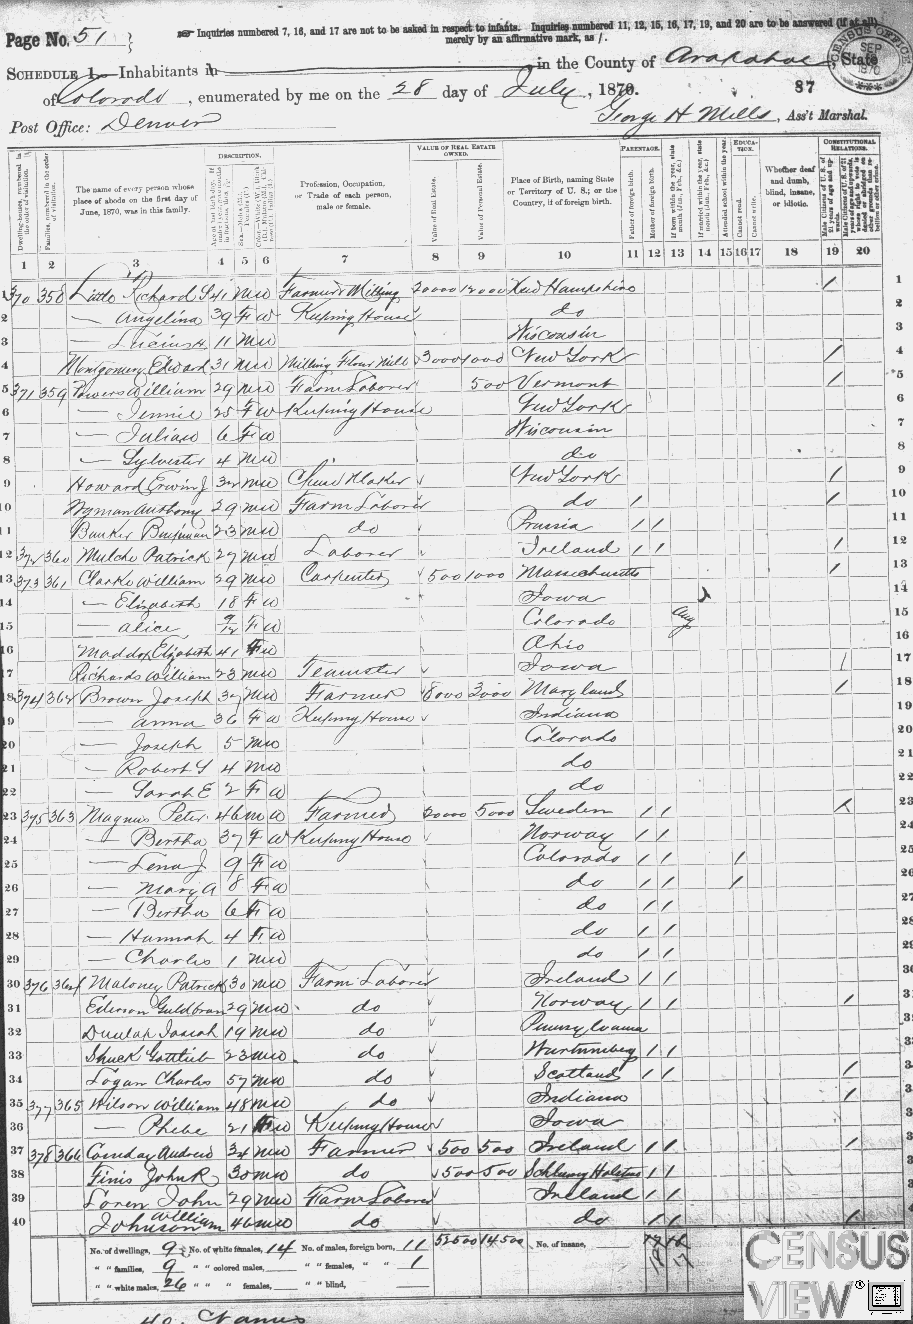 Page No. 51
Inquiries numbered 7, 16, and 17 are not to be asked in respect to infants. Inquiries numbered 11, 12, 15, 16, 17, 19, and 20 are to be answered (if at all)
merely by an affirmative mark, as /.
SCHEDULE 1.—Inhabitants in in the County of Arapahoe, State
of Colorado, enumerated by me on the 28 day of July, 1870. 87
Post Office: Denver George H Mills, Ass't Marshal.
CENSUS OFFICE SEP 1870
Dwelling-houses, numbered in the order of visitation.
Families, numbered in the order of visitation.
The name of every person whose place of abode on the first day of June, 1870, was in this family.
DESCRIPTION.
Profession, Occupation, or Trade of each person, male or female.
VALUE OF REAL ESTATE OWNED.
Value of Real Estate.
Value of Personal Estate.
Place of Birth, naming State or Territory of U. S.; or the Country, if of foreign birth.
PARENTAGE.
Father of foreign birth.
Mother of foreign birth.
If born within the year, state month (Jan., Feb., &c.)
If married within the year, state month (Jan., Feb., &c.)
EDUCATION.
Attended school within the year.
Cannot read.
Cannot write.
Whether deaf and dumb, blind, insane, or idiotic.
CONSTITUTIONAL RELATIONS.
1 2 3 4 5 6 7 8 9 10 11 12 13 14 15 16 17 18 19 20
1 370 358 Little Richard S 41 M W Farmer & Milling 20000 12000 New Hampshire / 1
2 — Angelina 39 F W Keeping House do 2
3 — 11 M W Wisconsin 3
4 Montgomery Edward 31 M W Milling Flour Mill 3000 1000 New York / 4
5 371 359 Powers William 29 M W Farm Laborer 500 Vermont / 5
6 — Jennie 25 F W Keeping House New York 6
7 — 6 F W Wisconsin 7
8 — Sylvester 4 M W do 8
9 Howard Erwin J 32 M W New York / 9
10 Wyman Anthony 29 M W Farm Laborer do / / 10
11 Bunker 23 M W do Prussia / / 11
12 372 360 Patrick 27 M W Laborer Ireland / / / 12
13 373 361 Clarke William 29 M W Carpenter 500 1000 Massachusetts / 13
14 — Elizabeth 18 F W Iowa 14
15 — Alice 9/12 F W Colorado Aug 15
16 Maddox Elizabeth 41 F W Ohio 16
17 Richards William 23 M W Teamster Iowa / 17
18 374 362 Brown Joseph 37 M W Farmer 8000 3000 Maryland / 18
19 — Anna 36 F W Keeping House Indiana 19
20 — Joseph 5 M W Colorado 20
21 — Robert S 4 M W do 22
22 — Sarah E 2 F W do 22
23 375 363 Magnus Peter 46 M W Farmer 20000 5000 Sweden / / 23
24 — Bertha 37 F W Keeping House Norway / / 24
25 — Lena J 9 F W Colorado / / / 25
26 — Mary A 8 F W do / / / 26
27 — Bertha 6 F W do / / 27
28 — Hannah 4 F W do / / 28
29 — Charles 1 M W do / / 29
30 376 364 Maloney Patrick 30 M W Farm Laborer Ireland / /
31 Ederson Guldbran 29 M W do Norway / / /
32 Dunlap Josiah 19 M W do Pennsylvania
33 Shuck Gottlieb 23 M W do Wurtemberg / /
34 Logan Charles 57 M W do Scotland / / /
35 377 365 Wilson William 48 M W do Indiana /
36 — Phebe 21 F W Keeping House Iowa
37 378 366 Andrew 34 M W Farmer 500 500 Ireland / / /
38 Finis John R 30 M W do 500 500 / /
39 Loren John 29 M W Farm Laborer Ireland / /
40 Johnson William 46 M W do do / / /
No. of dwellings, 9 No. of white females, 14 No. of males, foreign born, 11 52500 14500 No. of insane,
" " families, 9 " " colored males, " " females, " " 1
" " white males, 26 " " " females, " " blind,
40 Names
CENSUS
VIEW